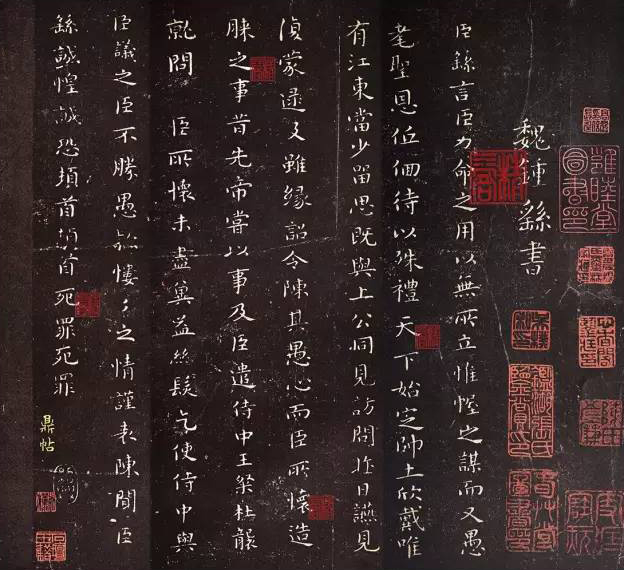 魏鍾繇書
臣繇言臣力命之用以無所立惟幄之謀而又愚
耄聖恩低佪待以殊禮天下始定帥土欣戴唯
有江東當少留思既與上公同見訪問昨日讌見
蒙逮及雖緣詔令陳其愚心而臣所懷造
膝之事昔先帝嘗以事及臣遣侍中王粲杜襲
就問 臣所懷未盡冀益絲髮乞使侍中與
臣議之臣不勝愚款慺々之情謹表陳聞臣
繇誠惶誠恐頓首頓首死罪死罪
鼎帖